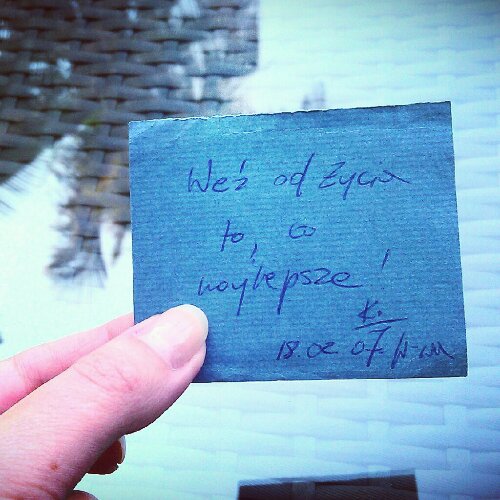 Weź od życia
to, co
najlepsze!
K.
18.02 07